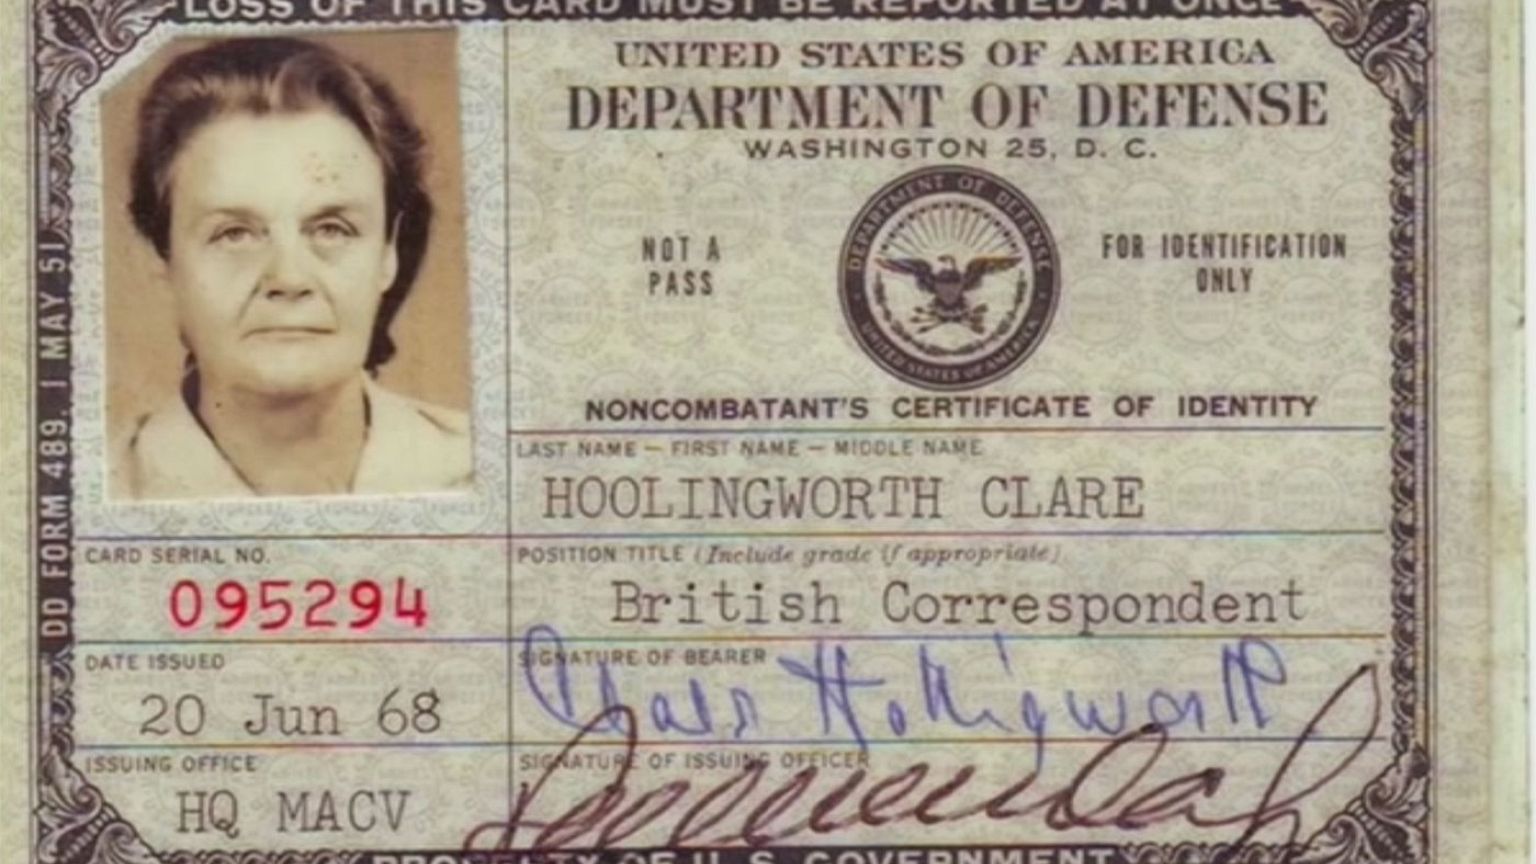 LOSS OF THIS CARD MUST BE REPORTED AT ONCE
UNITED STATES OF AMERICA
DEPARTMENT OF DEFENSE
WASHINGTON 25, D. C.
NOT A
PASS
DEPARTMENT OF DEFENSE
UNITED STATES OF AMERICA
FOR IDENTIFICATION
ONLY
NONCOMBATANT'S CERTIFICATE OF IDENTITY
LAST NAME — FIRST NAME — MIDDLE NAME
HOOLINGWORTH CLARE
CARD SERIAL NO.
095294
POSITION TITLE (Include grade if appropriate)
British Correspondent
DATE ISSUED
20 Jun 68
SIGNATURE OF BEARER
Clare Hollingworth
ISSUING OFFICE
HQ MACV
SIGNATURE OF ISSUING OFFICER
DD FORM 489, 1 MAY 51
PROPERTY OF U. S. GOVERNMENT